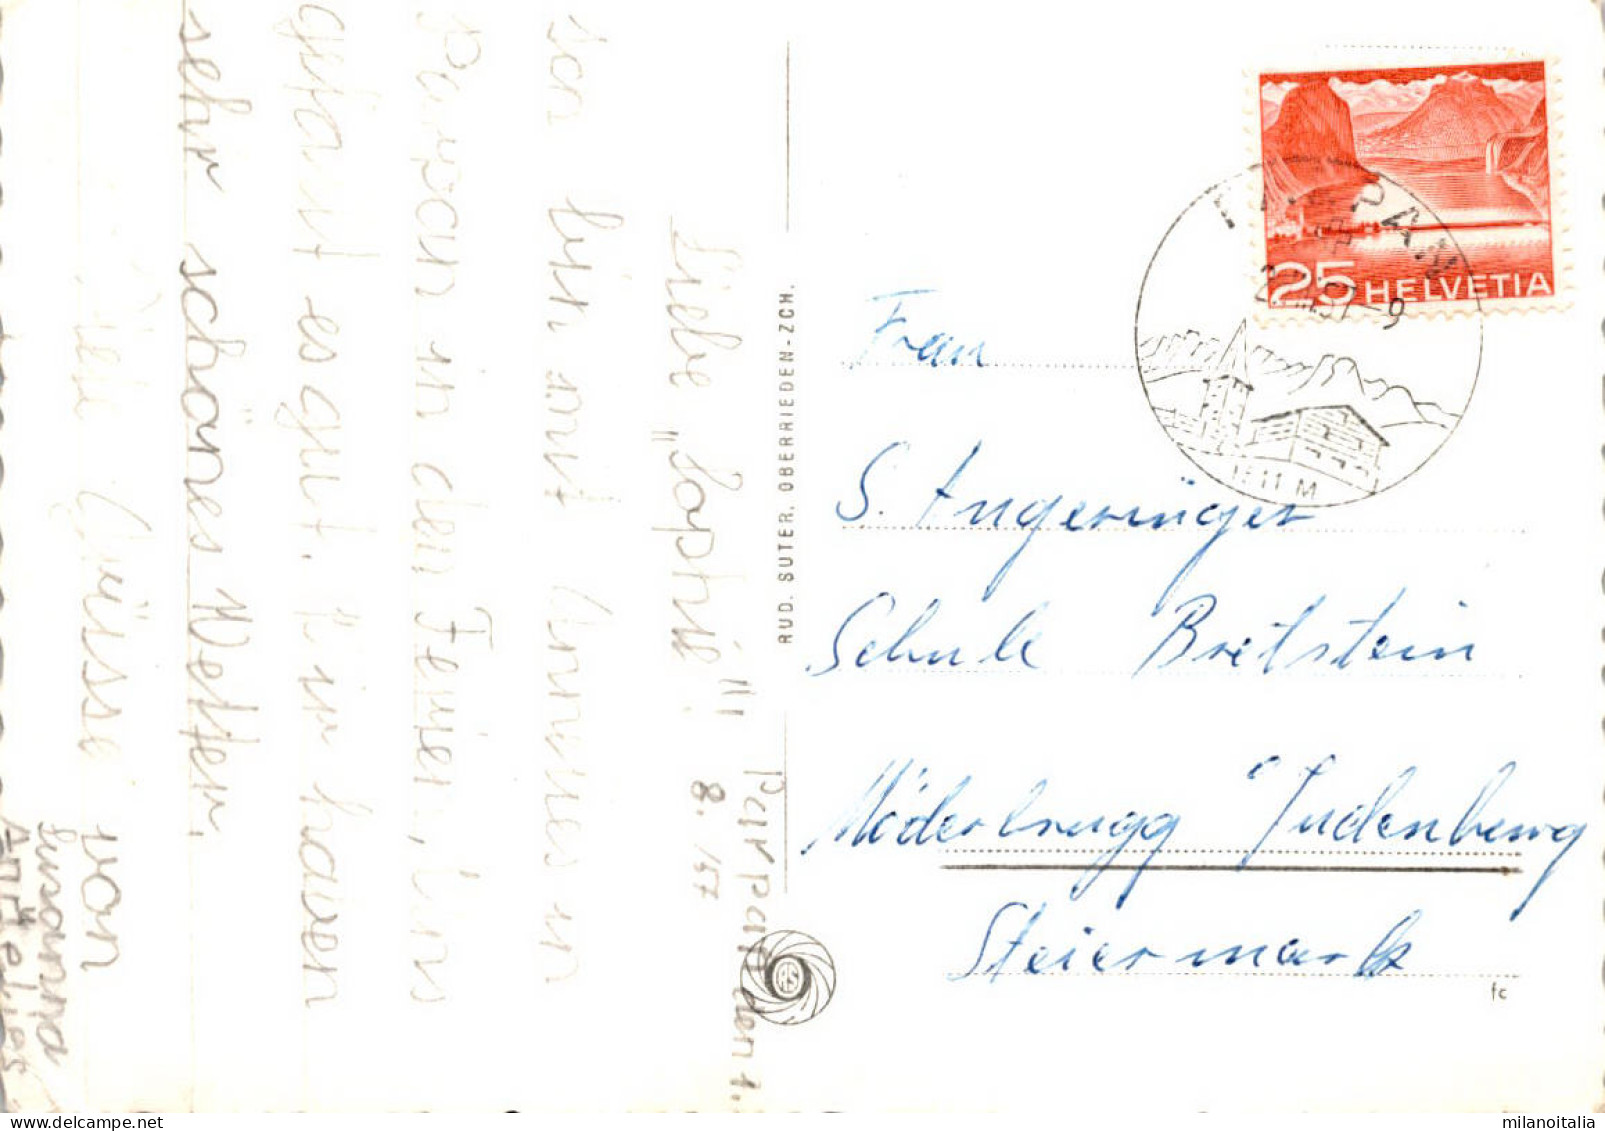 Parpan den 1.
8. 57
Liebe „Sophie"!!
Ich bin mit Annines in
Parpan in den Ferien, Uns
gefällt es gut. Wir haben
sehr schönes Wetter.
Viele Grüsse von
Susanna
RUD. SUTER, OBERRIEDEN-ZCH.
25 HELVETIA
PARPAN
57-9
1511 M
Frau
S. Angeringer
Schule Bretstein
Möderbrugg Judenburg
Steiermark
fc
milanoitalia